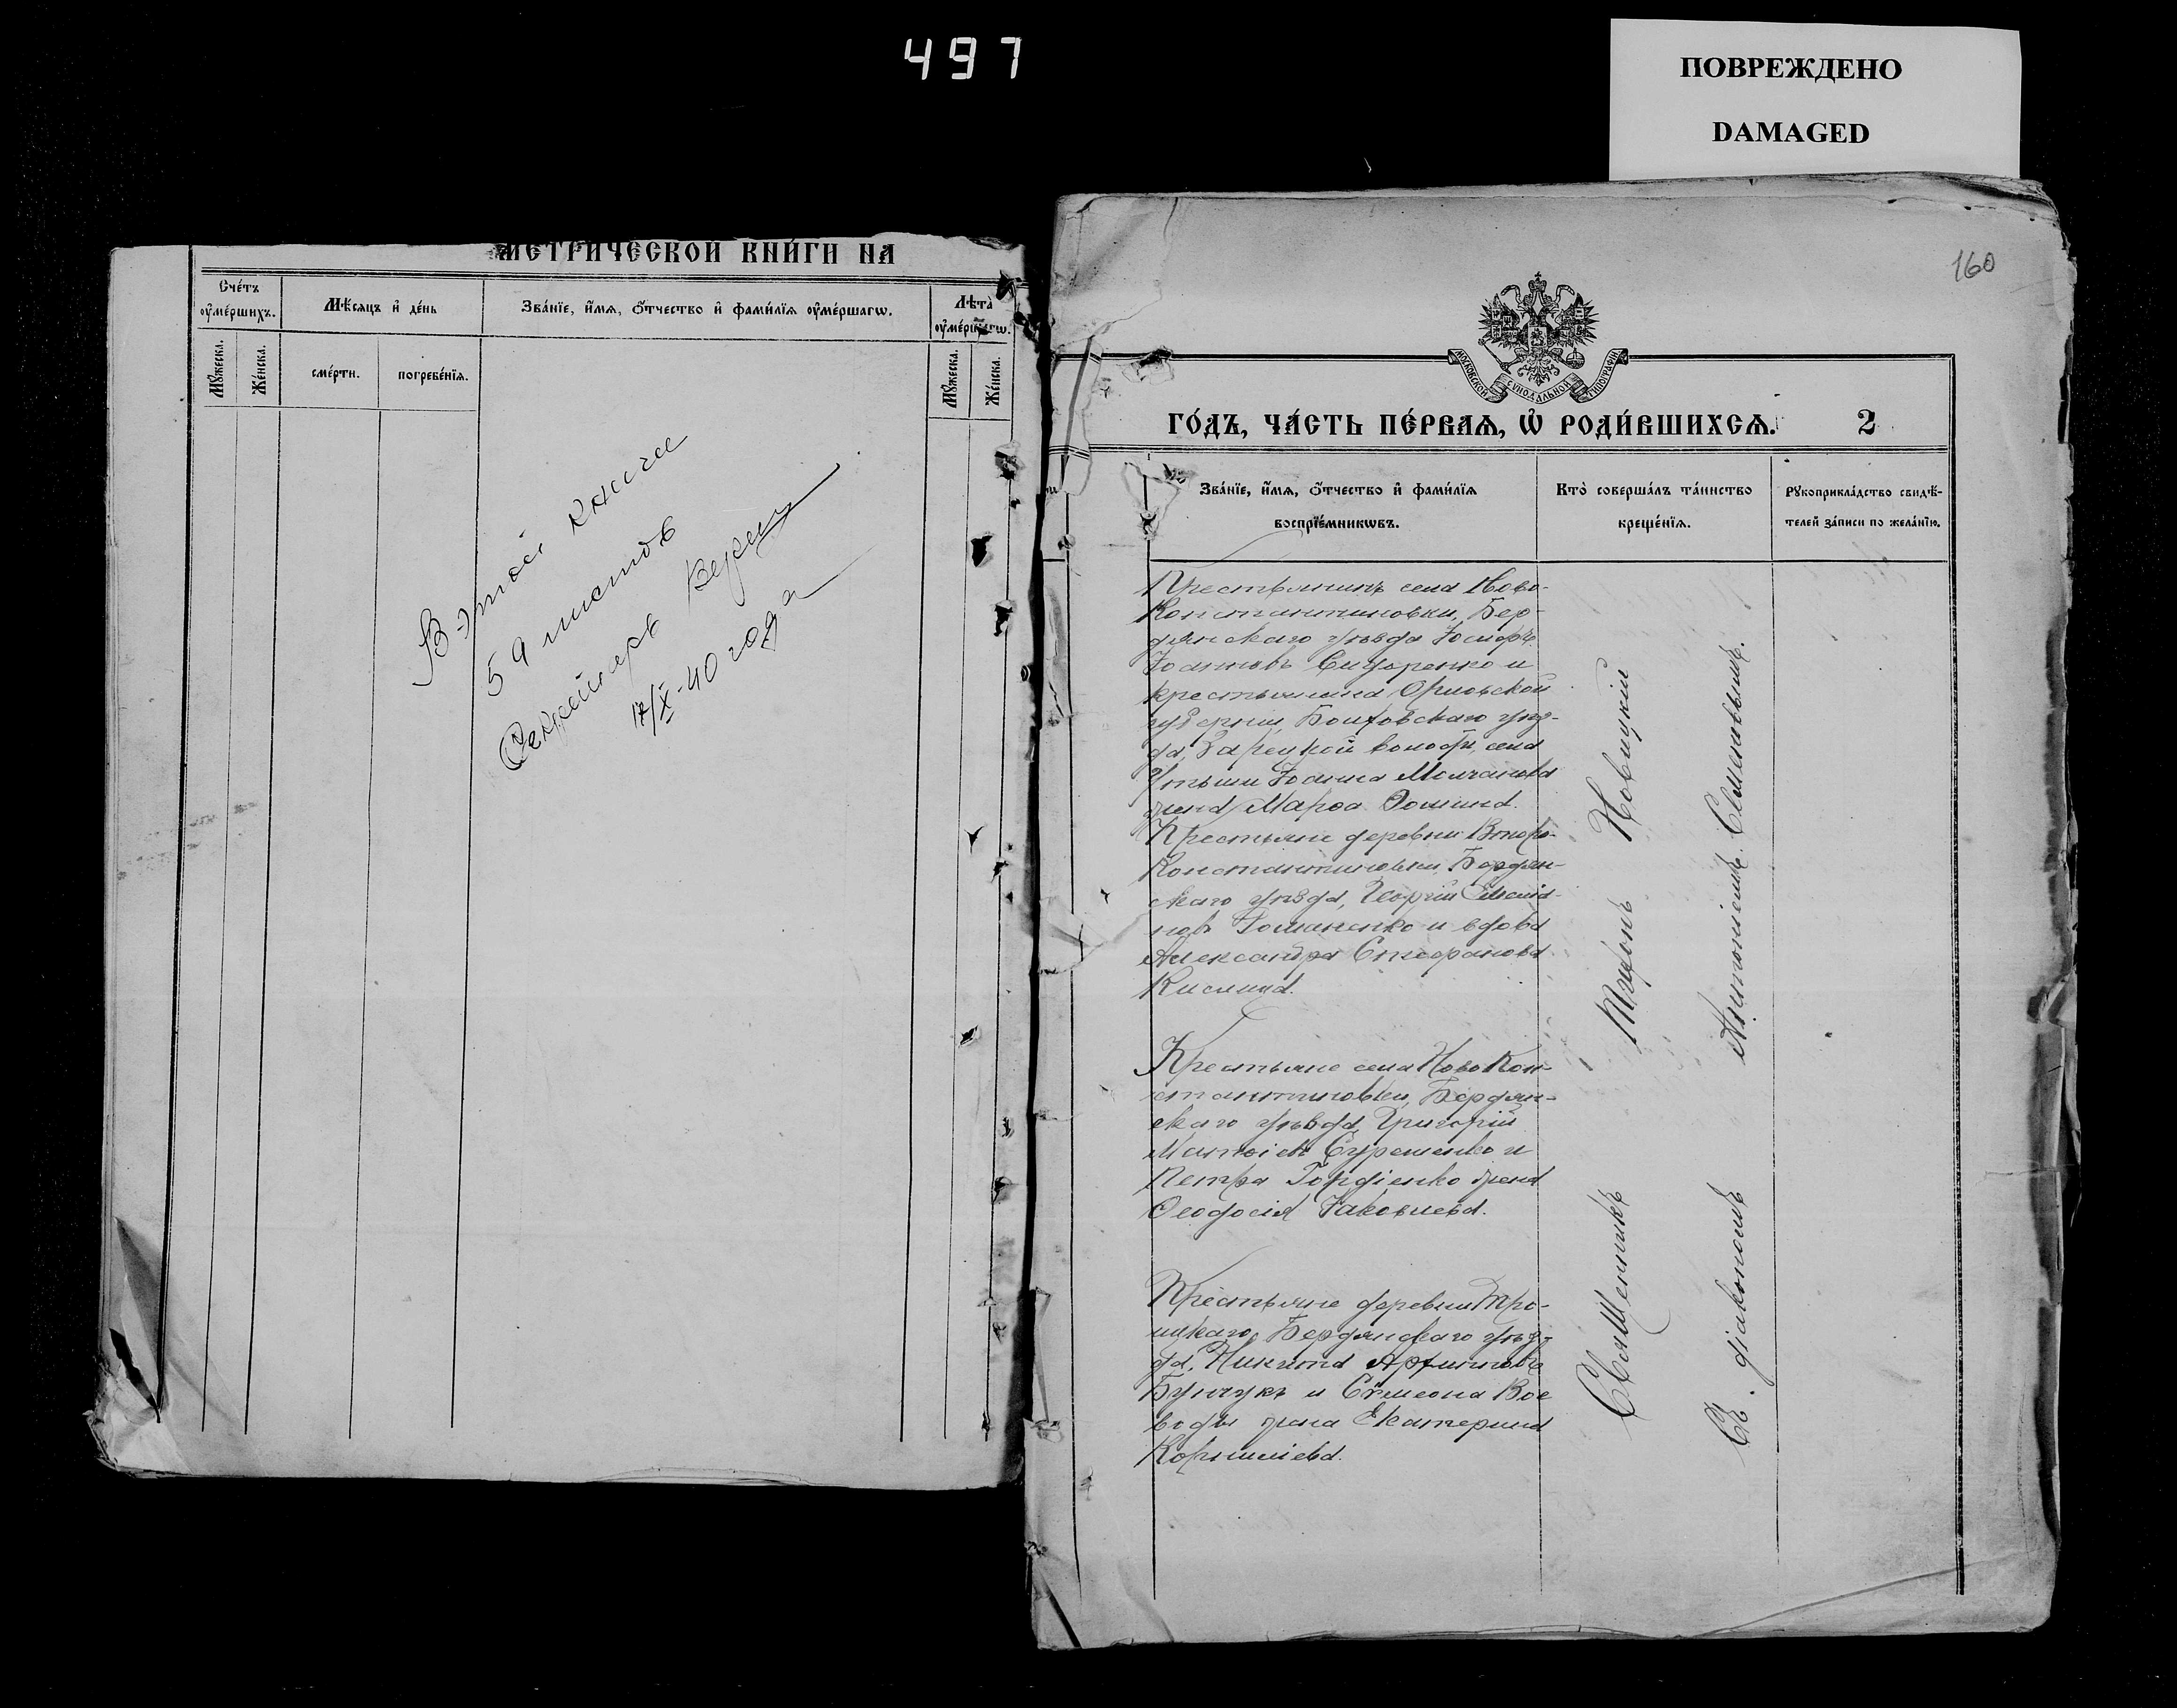 497
ПОВРЕЖДЕНО
DAMAGED
МЕТРИЧЕСКОЙ КНИ́ГИ НА
Сче́тъ
оу҆ме́ршихъ.
Мѣ́сяцъ и҆ де́нь
Зва́нїе, и҆́мѧ, ѻ҆́тчество и҆ фами́лїѧ оу҆ме́ршагѡ.
Лѣта̀
оу҆ме́ршагѡ.
Мꙋ́жеска.
Же́нска.
сме́рти.
погребе́нїѧ.
Мꙋ́жеска.
Же́нска.
В этой книге
59 листов
Секретарь
17/X-40 года
160
МОСКОВСКОЙ СѴНОДАЛЬНОЙ ТИПОГРАФІИ
ГО́ДЪ, ЧА́СТЬ ПЕ́РВАѦ, Ѡ҆ РОДИ́ВШИХСѦ. 2
Зва́нїе, и҆́мѧ, ѻ҆́тчество и҆ фами́лїѧ
воспрїе́мникѡвъ.
Кто̀ соверша́лъ та́инство
креще́нїѧ.
Рꙋкоприкла́дство свидѣ́-
телей за́писи по жела́нїю.
Крестьянинъ села Ново-
Константиновки, Бер-
дянскаго уѣзда Іосифъ
Іоанновъ Сидоренко и
крестьянина Орловской
губерніи, Болховскаго уѣз-
да, Зарецкой волости, села
Іоанна Молчанова
жена Марѳа Ѳомина.
Крестьяне деревни Второ-
Константиновки, Бердян-
скаго уѣзда, Георгій
новъ Романенко и вдова
Александра Стефанова
Кислица.
Крестьяне села НовоКон-
стантиновки, Бердян-
скаго уѣзда, Григорій
Петра Гордіенко жена
Ѳеодосія Іаковлева.
Крестьяне деревни Тро-
ицкаго, Бердянскаго уѣз-
да, Никита
Бунчукъ и Сѵмеона Вое
воды жена Екатерина
Корниліева.
Священникъ Тихонъ Новицкій
съ. діакономъ Антоніемъ Семеновымъ.